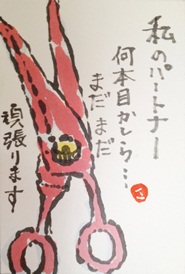 私のパートナー
何本目かしら…
まだまだ
頑張ります